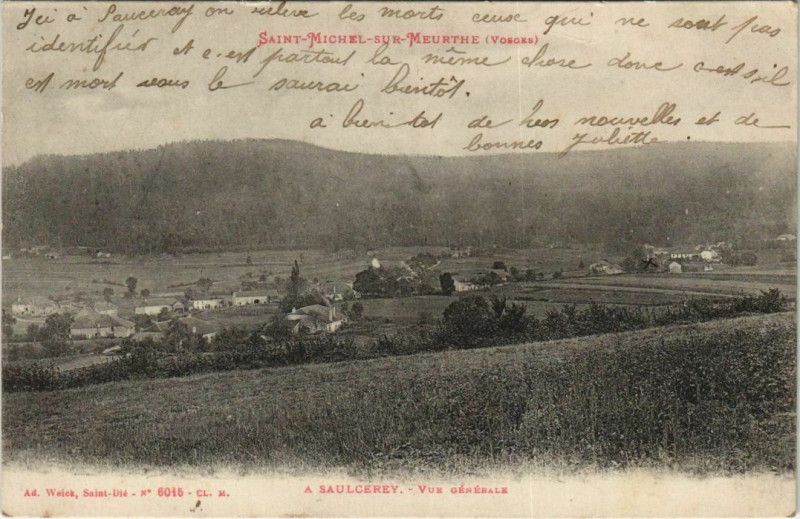 Ici à Sauceray on relève les morts ceux qui ne sont pas
identifiés et c'est partout la même chose donc c'est s'il
est mort vous le saurai bientôt.
à bientôt de vos nouvelles et de
bonnes Juliette
SAINT-MICHEL-SUR-MEURTHE (VOSGES)
Ad. Weick, Saint-Dié - N° 6015 - CL. M.
A SAULCEREY. - VUE GÉNÉRALE